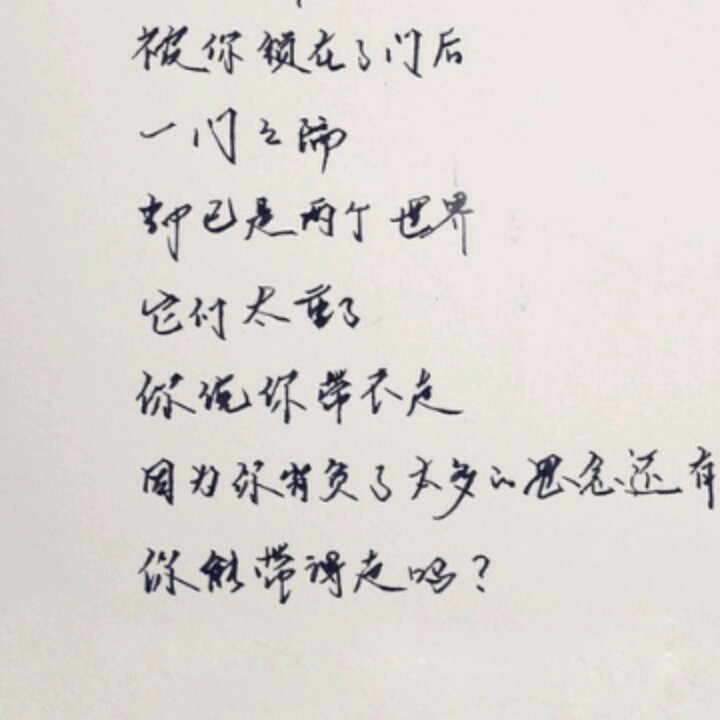 被你锁在了门后
一门之隔
却已是两个世界
它们太重了
你说你带不走
因为你背负了太多的思念还有
你能带得走吗?